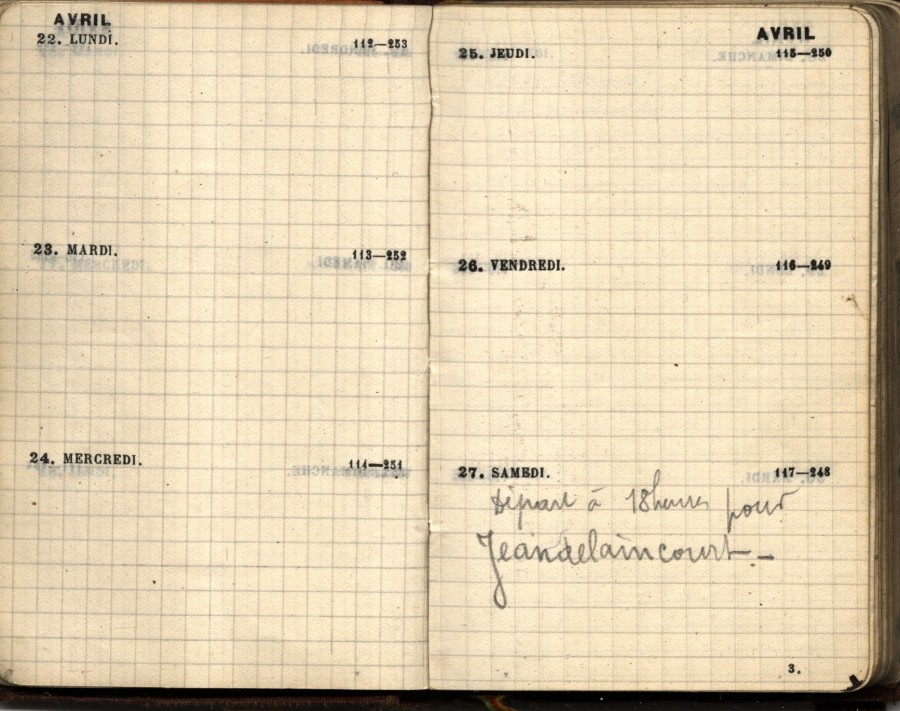 AVRIL
22. LUNDI. 112—253
23. MARDI. 113—252
24. MERCREDI. 114—251
AVRIL
25. JEUDI. 115—250
26. VENDREDI. 116—249
27. SAMEDI. 117—248
Départ à 18 heures pour
Jeandelaincourt —
3.